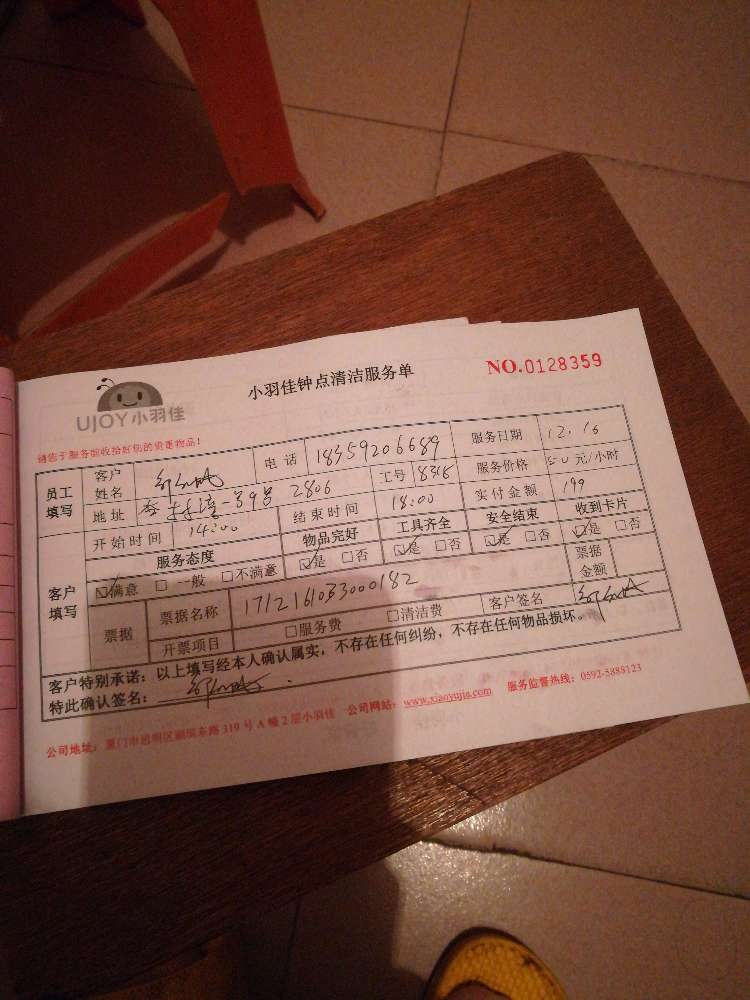 小羽佳钟点清洁服务单
NO.0128359
UJOY小羽佳
请您于服务前收拾好您的贵重物品!
员工填写 客户姓名 电话 18359206689 服务日期 12.16
地址 2806 工号 8316 服务价格 50元/小时
开始时间 14:00 结束时间 18:00 实付金额 199
客户填写 服务态度 物品完好 工具齐全 安全结束 收到卡片
☑满意 □一般 □不满意 ☑是 □否 ☑是 □否 ☑是 □否 ☑是 □否
票据 票据名称 1712161033000182 票据金额
开票项目 □服务费 □清洁费 客户签名
客户特别承诺:以上填写经本人确认属实,不存在任何纠纷,不存在任何物品损坏。
特此确认签名:
公司地址:厦门市思明区湖滨东路319号A幢2层小羽佳 公司网站:www.xiaoyujia.com 服务监督热线:0592-5885123